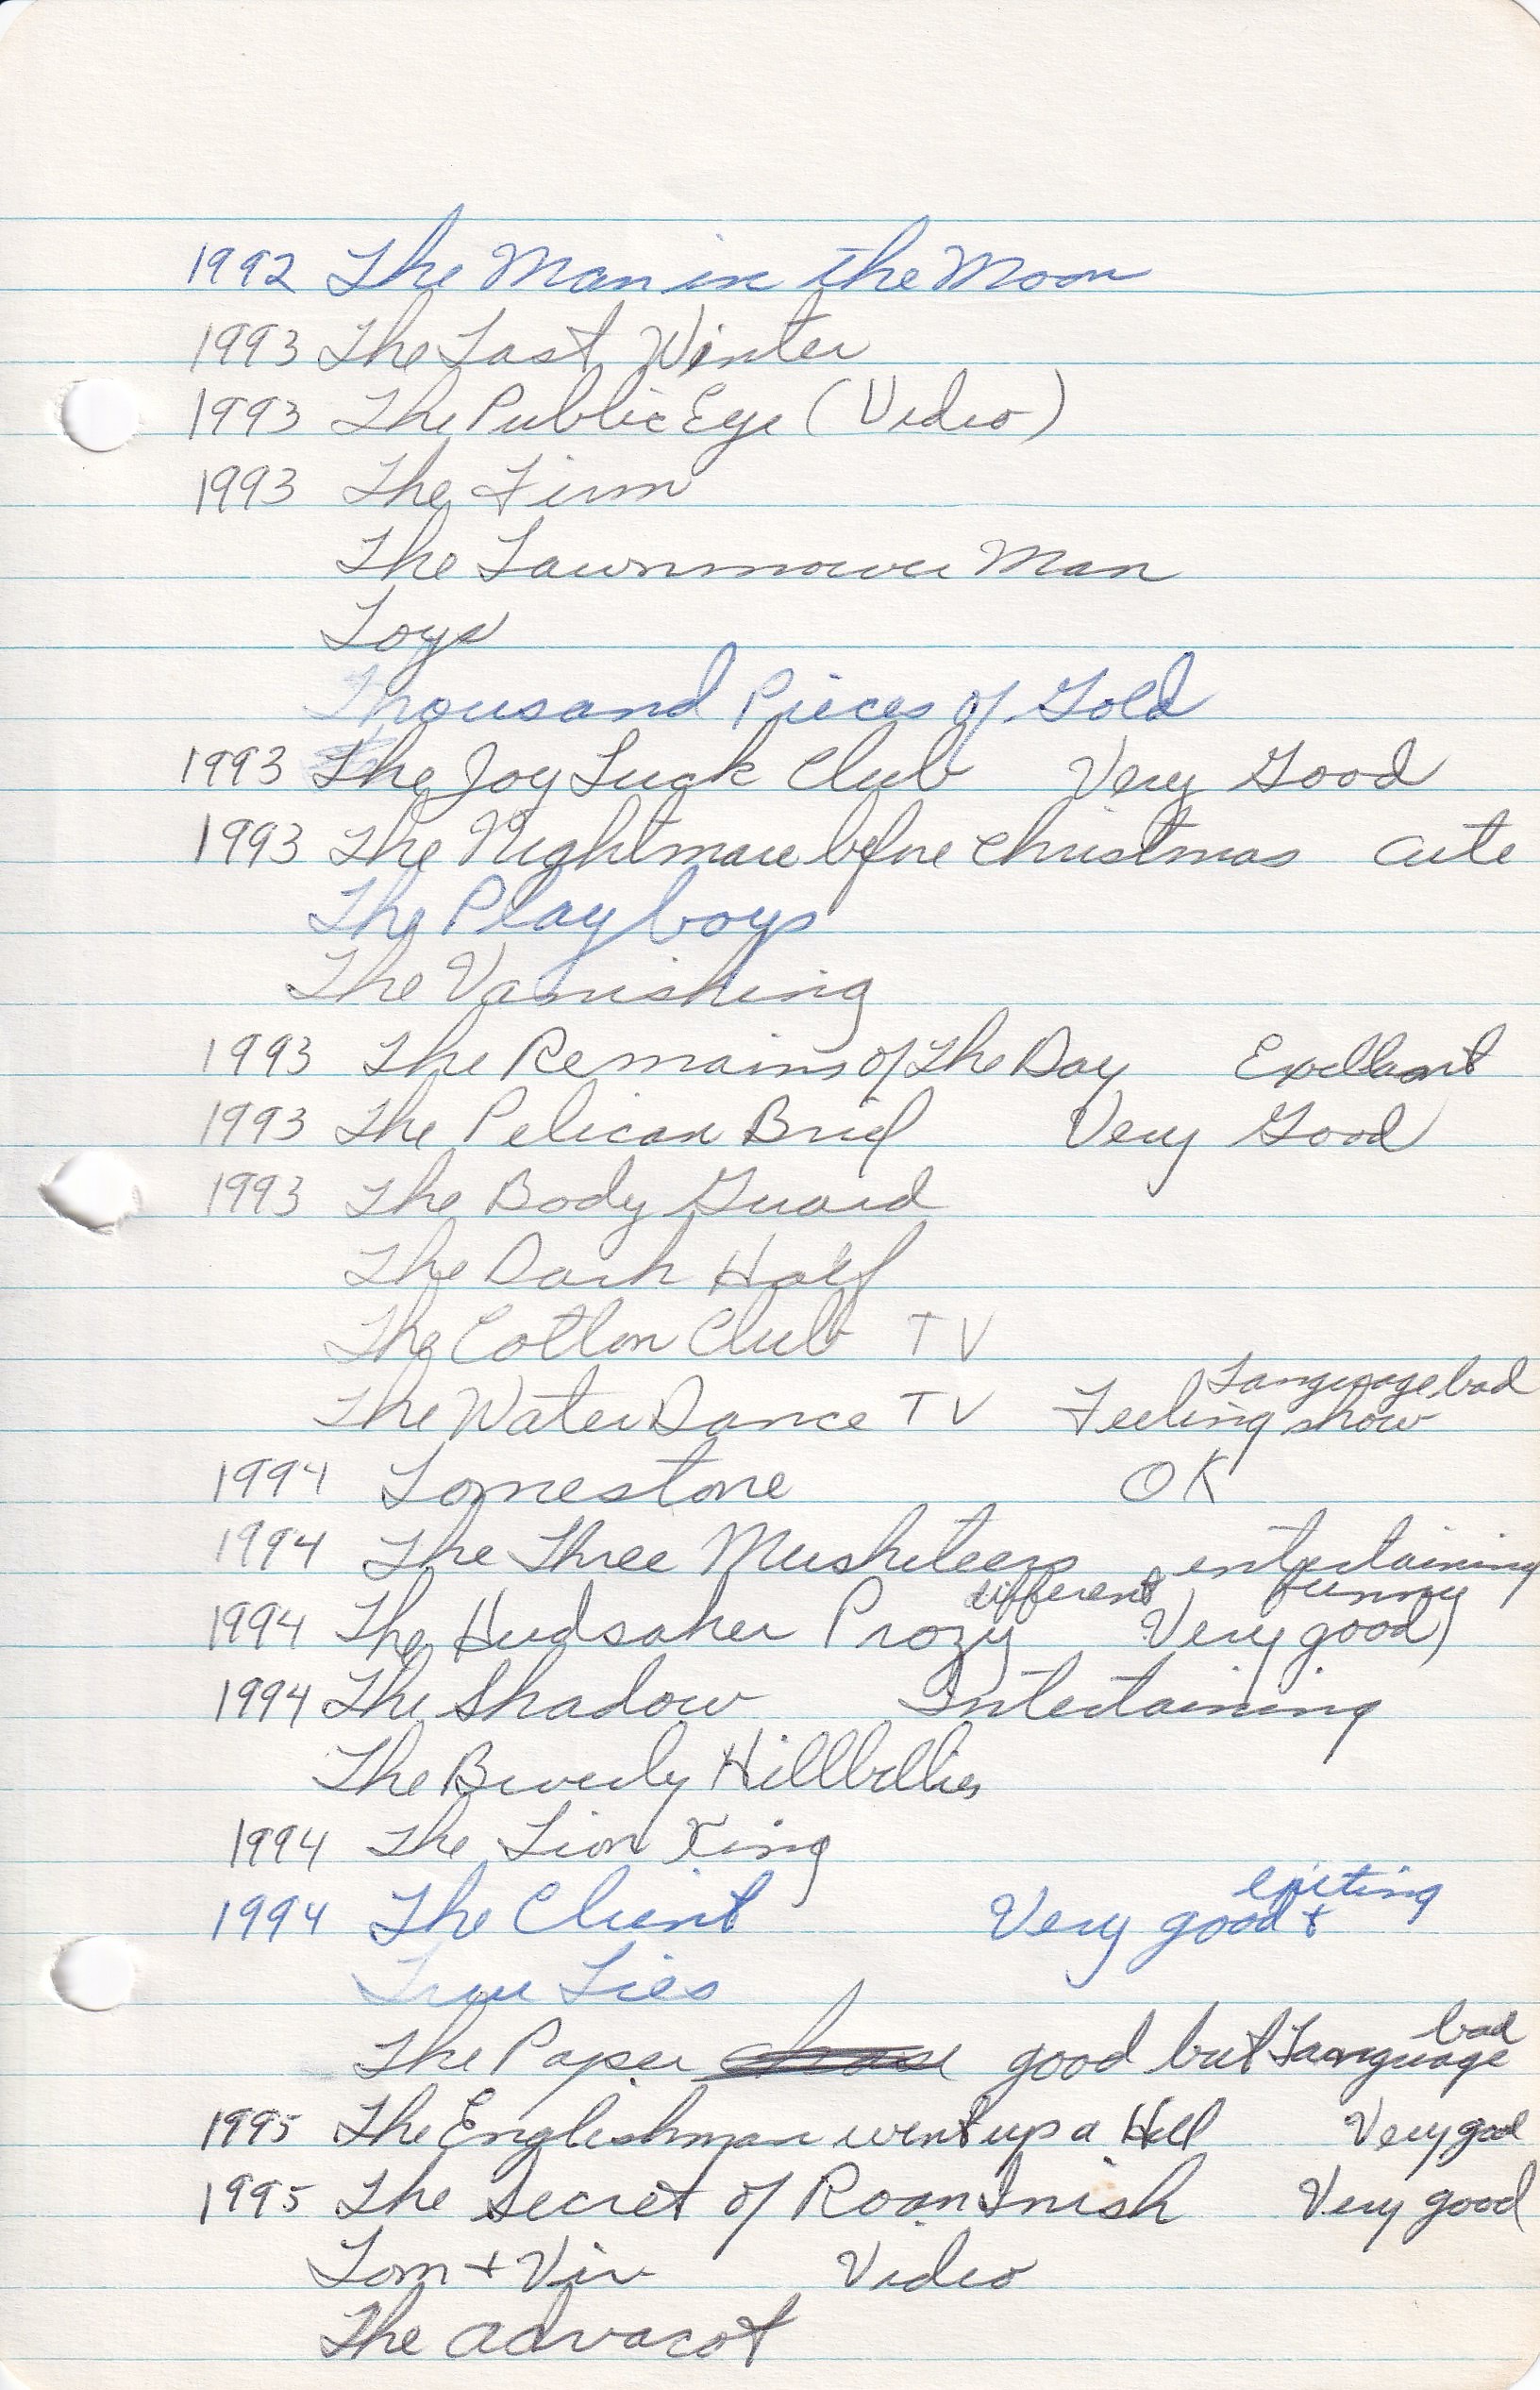 1992 The Man in the Moon
1993 The Last Winter
1993 The Public Eye (Video)
1993 The Firm
The Lawnmower Man
Toys
Thousand Pieces of Gold
1993 The Joy Luck Club Very Good
1993 The Nightmare before Christmas cute
The Playboys
The Vanishing
1993 The Remains of The Day Exellant
1993 The Pelican Brief Very Good
1993 The Body Guard
The Dark Half
The Cotton Club TV
The Water Dance TV Feeling show Language bad
1994 Tomestone OK
1994 The Three Musketeers entertaining
1994 The Hudsaker Prozy different Very good funny
1994 The Shadow Entertaining
The Beverly Hillbillies
1994 The Lion King
1994 The Client Very good + exciting
True Lies
The Paper good but Language bad
1995 The Englishman went up a Hill Very good
1995 The Secret of Roan Inish Very good
Tom + Viv Video
The advacot